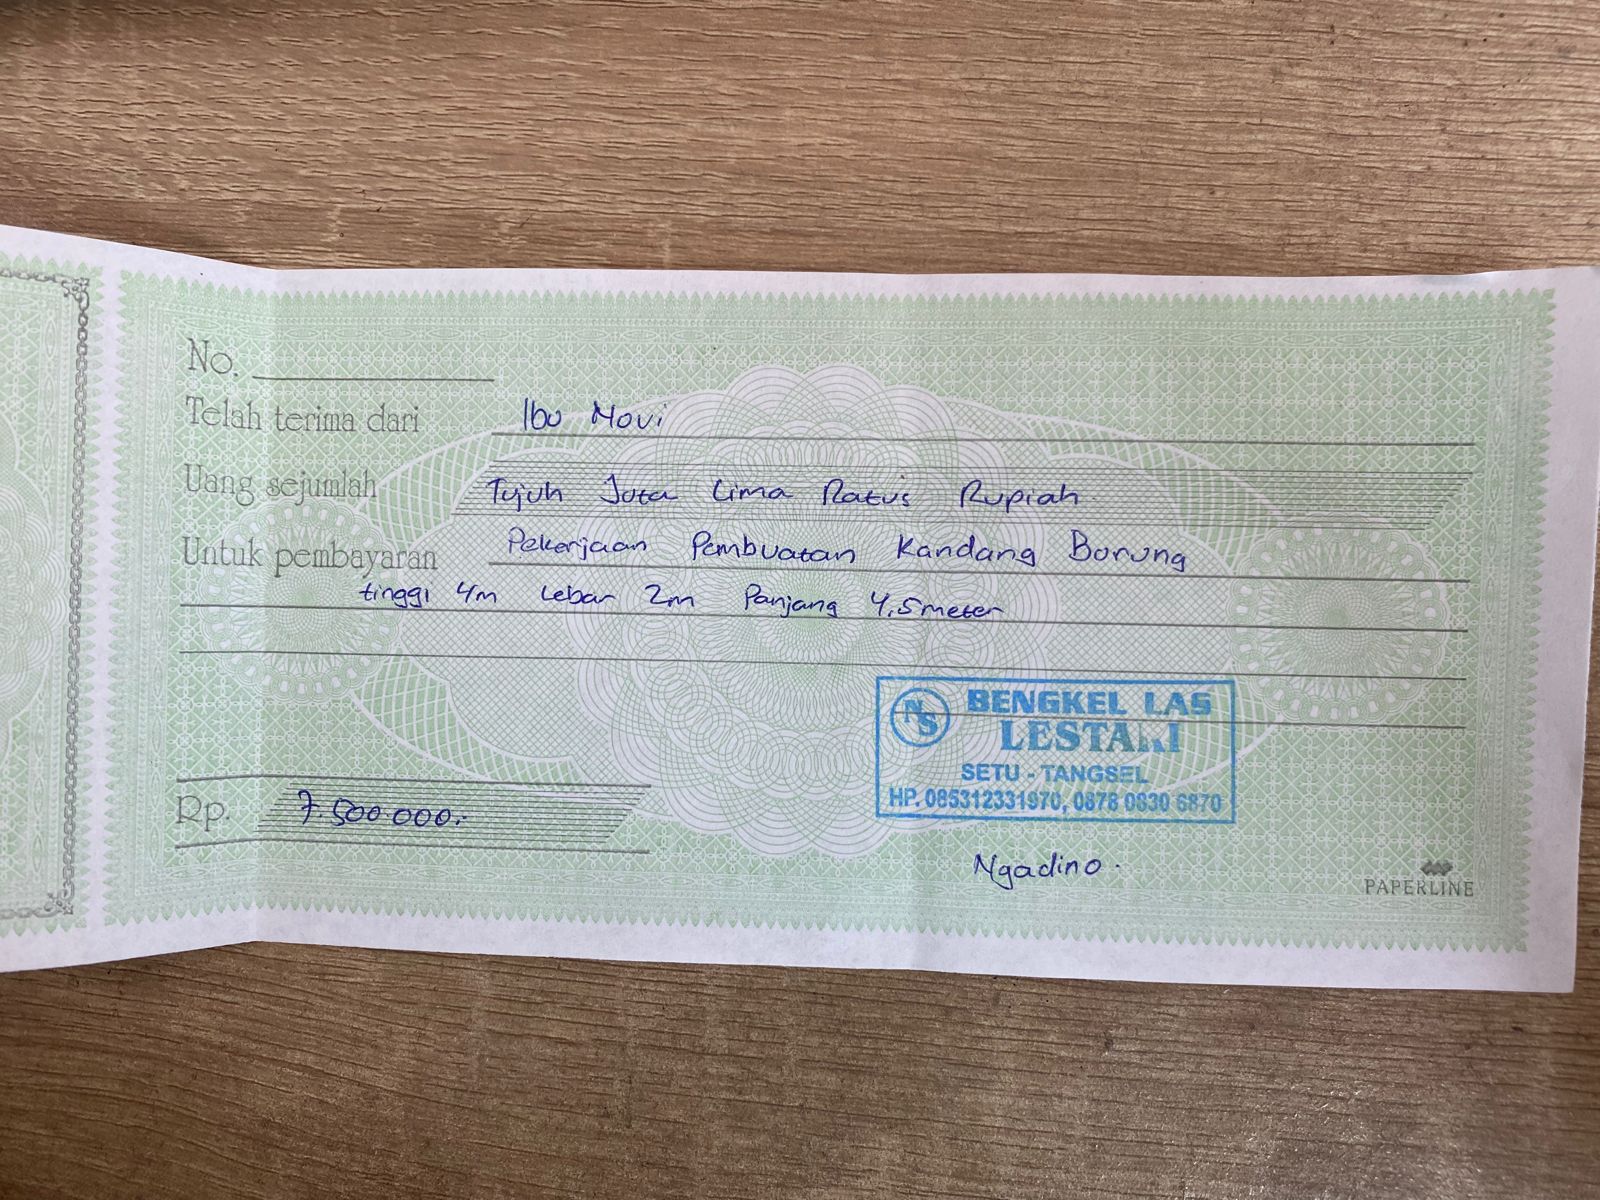 No.
Telah terima dari Ibu Novi
Uang sejumlah Tujuh Juta Lima Ratus Rupiah
Untuk pembayaran Pekerjaan Pembuatan Kandang Borung
tinggi 4m Lebar 2m Panjang 4,5 meter
NS BENGKEL LAS
LESTARI
SETU - TANGSEL
HP. 085312331970, 0878 0830 6870
Rp. 7.500.000.-
Ngadino.
PAPERLINE